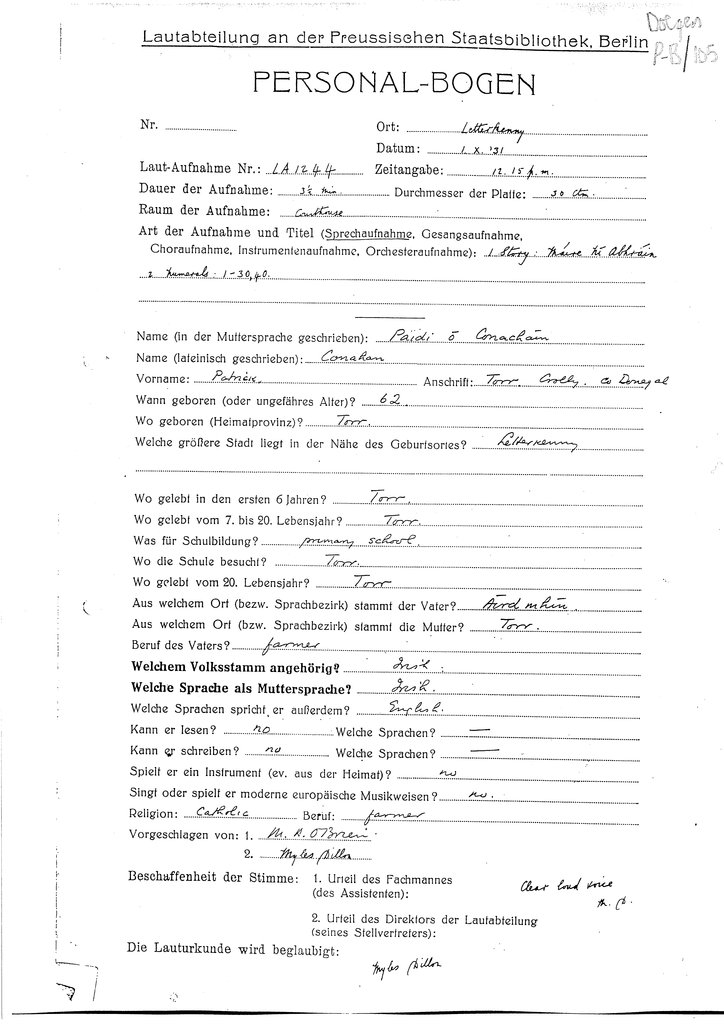 Doegen
Lautabteilung an der Preussischen Staatsbibliothek, Berlin P-B/105
PERSONAL-BOGEN
Nr. Ort: Letterkenny
Datum: 1. X. '31
Laut-Aufnahme Nr.: LA 1244 Zeitangabe: 12.15 p.m.
Dauer der Aufnahme: 3½ min Durchmesser der Platte: 30 cm.
Raum der Aufnahme: Courthouse
Art der Aufnahme und Titel (Sprechaufnahme, Gesangsaufnahme,
Choraufnahme, Instrumentenaufnahme, Orchesteraufnahme): 1 Story: Máire Ní
2 Numerals: 1-30, 40.
Name (in der Muttersprache geschrieben): Páidi ó Conacháin
Name (lateinisch geschrieben): Conahan
Vorname: Patrick. Anschrift: Torr, Crolly, Co Donegal
Wann geboren (oder ungefähres Alter)? 62
Wo geboren (Heimatprovinz)? Torr.
Welche größere Stadt liegt in der Nähe des Geburtsortes? Letterkenny
Wo gelebt in den ersten 6 Jahren? Torr.
Wo gelebt vom 7. bis 20. Lebensjahr? Torr.
Was für Schulbildung? primary school.
Wo die Schule besucht? Torr.
Wo gelebt vom 20. Lebensjahr? Torr
Aus welchem Ort (bezw. Sprachbezirk) stammt der Vater? Áird mhín.
Aus welchem Ort (bezw. Sprachbezirk) stammt die Mutter? Torr.
Beruf des Vaters? farmer
Welchem Volksstamm angehörig? Irish.
Welche Sprache als Muttersprache? Irish.
Welche Sprachen spricht er außerdem? English.
Kann er lesen? no Welche Sprachen? —
Kann er schreiben? no Welche Sprachen? —
Spielt er ein Instrument (ev. aus der Heimat)? no
Singt oder spielt er moderne europäische Musikweisen? no.
Religion: Catholic Beruf: farmer
Vorgeschlagen von: 1. M. A. O'Brien.
2. Myles Dillon
Beschaffenheit der Stimme: 1. Urteil des Fachmannes
(des Assistenten): Clear loud voice
M. D.
2. Urteil des Direktors der Lautabteilung
(seines Stellvertreters):
Die Lauturkunde wird beglaubigt:
Myles Dillon